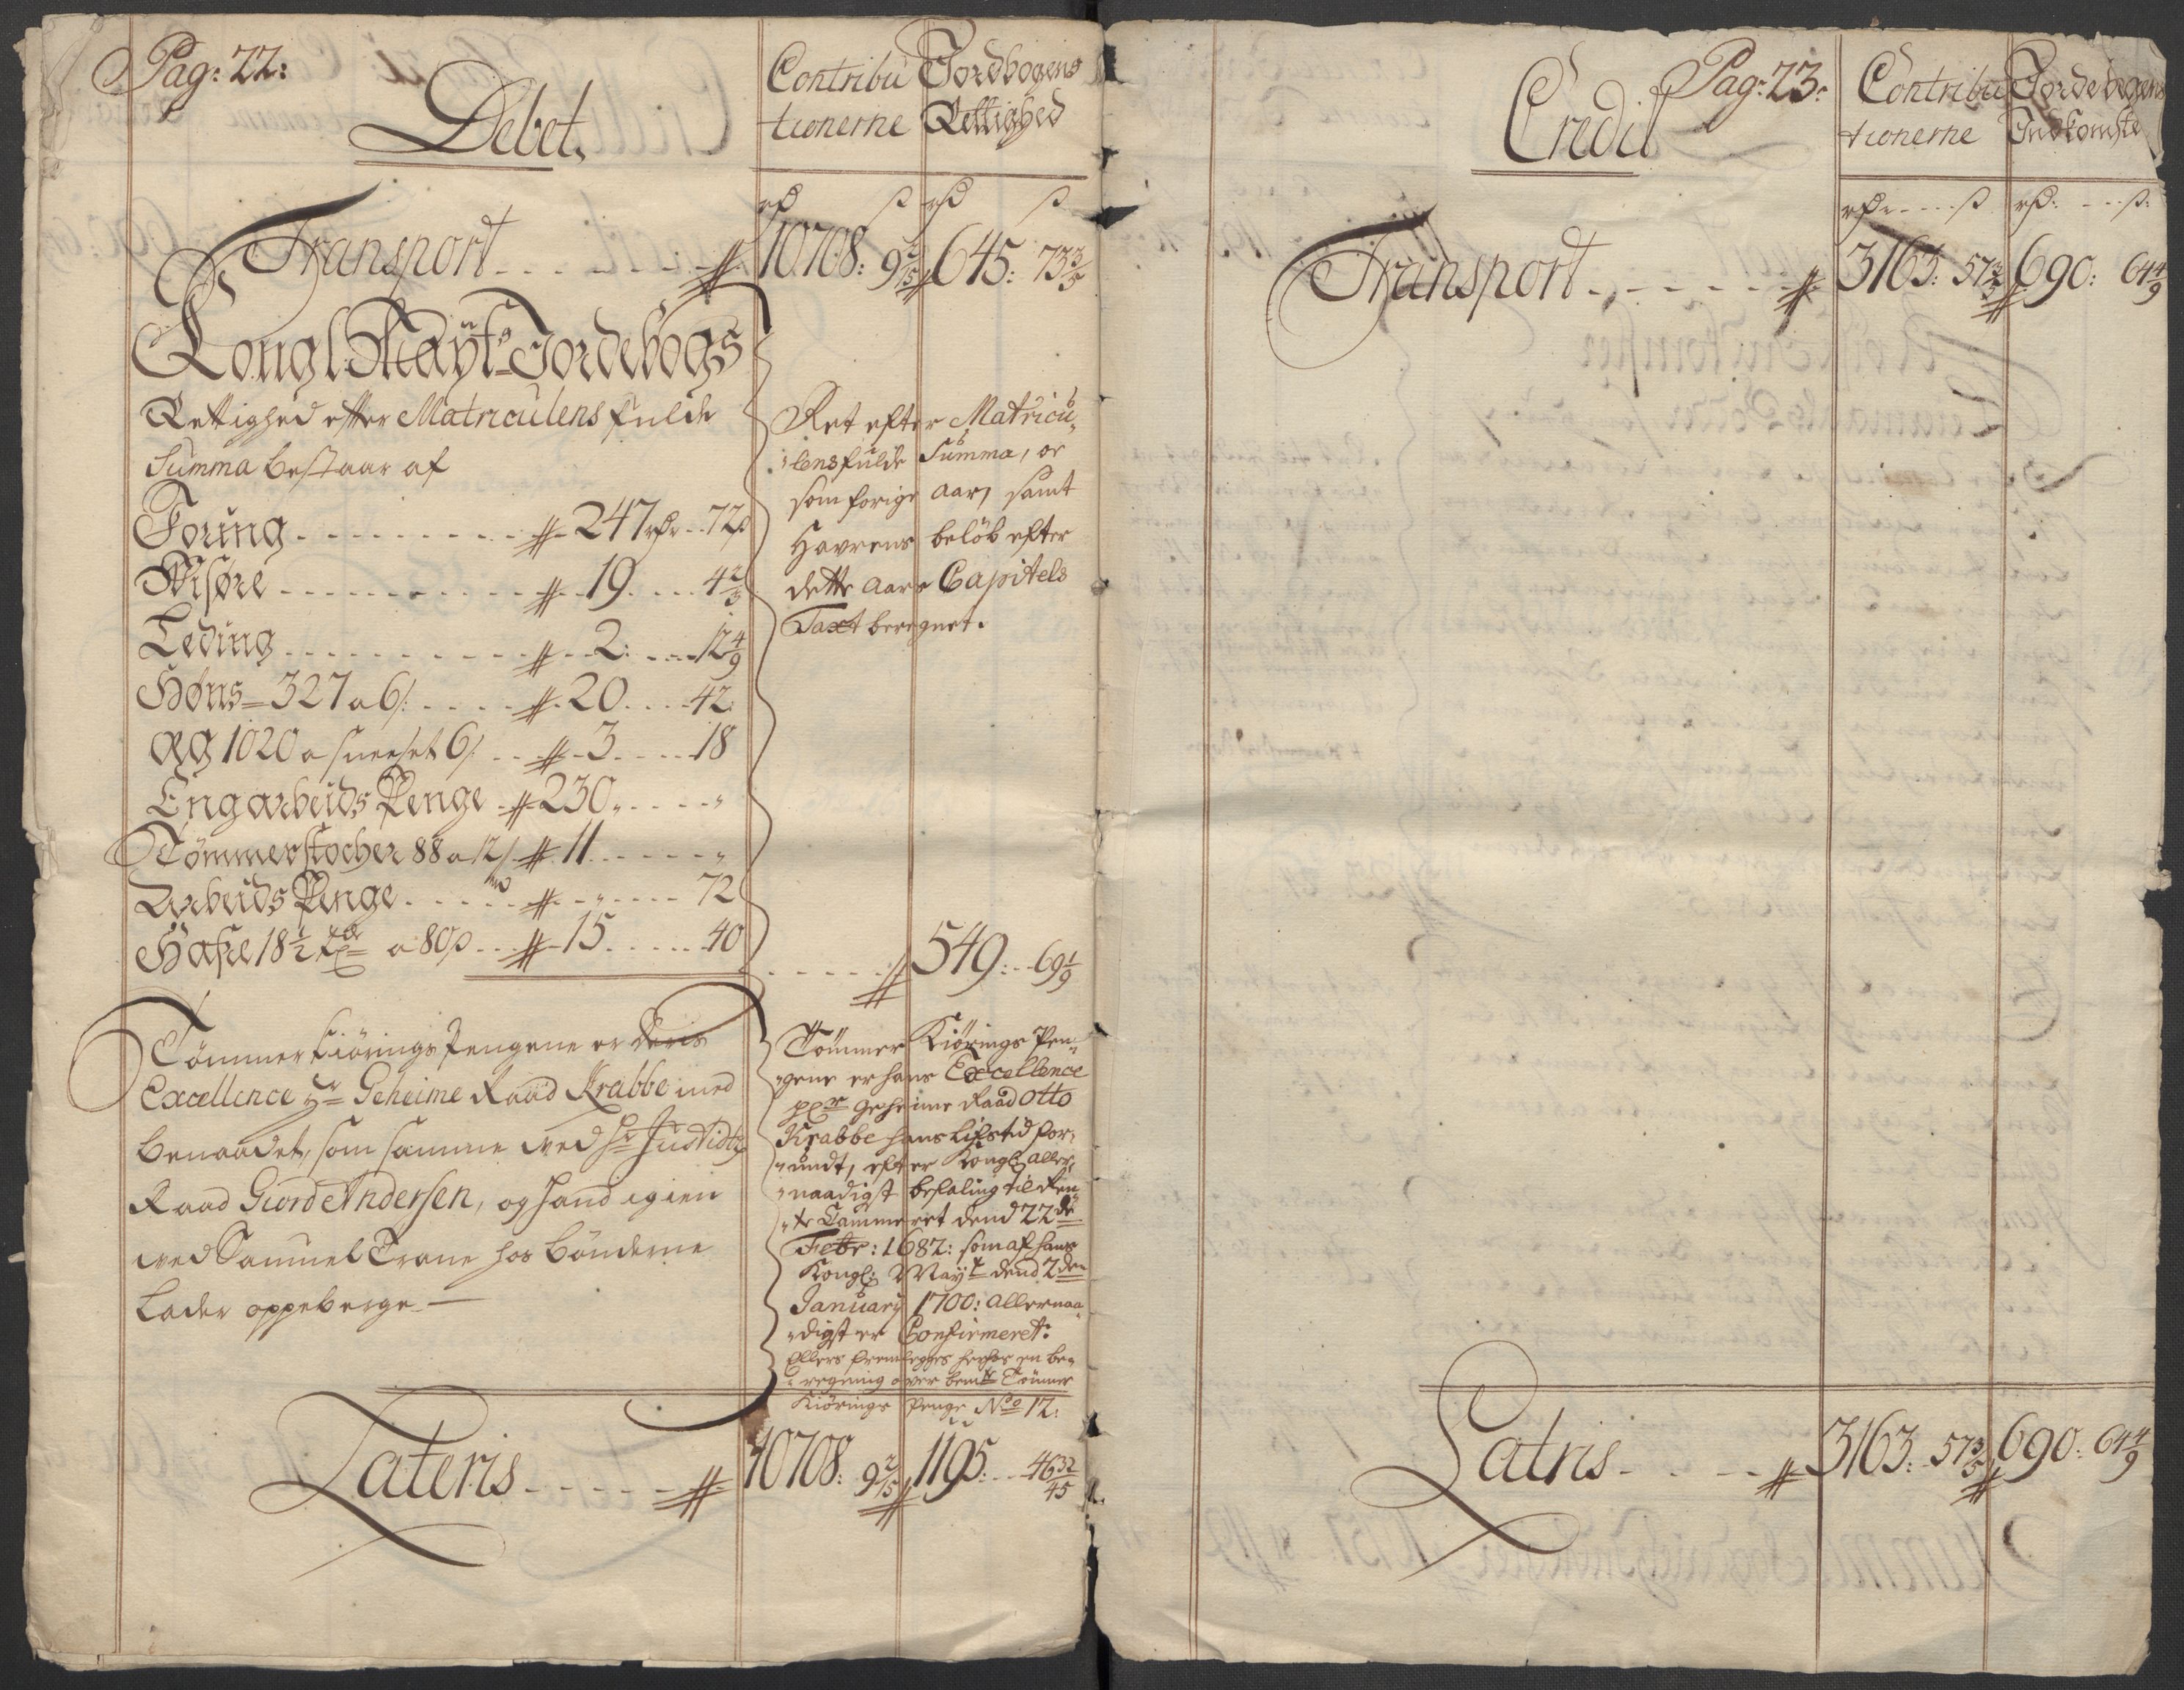 Pag: 22:
Debet,
Contribu
tionerne
Jordbogens
Rettighed
rd ß rd ß
Transport - - - - - - - 10708: 9 2/5 645: 73 3/5
Kongl. Mayts Jordebogs
Rettighed efter Matriculens fulde
Summa bestaar af
Foring - - - - - - - - - 247 rdr - - 72 ß
Wisøre - - - - - - - - - 19 - - - 4 2/3
Leding - - - - - - - - - 2: - - - 12 4/9
Høns = 327 a 6 ß: - - - - 20 - - - 42:
Æg 1020 a sneeset 6 ß - - 3 - - - 18
Engarbeids Penge - 230 „ - - - „
Tømmerstocher 88 a 12 ß - 11 - - - - „
Arbeids Penge - - - - - „ - - - 72
Hafre 18 1/2 a 80 ß - - - 15 - - - 40
Ret efter Matricu„
„lens fulde Summa, or
som forige aar, samt
Havrens beløb efter
dette aars Capitels
Taxt beregnet.
- - - - - 549: - - 69 1/9
Tømmer Kiørings Pengene er deris
Excellence Hr Geheime Raad Krabbe med
benaadet, som samme ved Hr Justidtz
Raad Giord Andersen, og hand igien
ved Samuel Trane hos bønderne
Lader oppeberge —
Tømmer Kiørings Pen„
„gene er hans Excellence
Hr Geheime Raad Otto
Krabbe hans Lifstid for„
„undt, efter Kongl aller„
„naadigst befaling til Ren„
„te Cammeret dend 22de
Febr: 1682: som af hans
Kongl: Mayt dend 2den
January 1700: allernaa„
„digst er Confirmeret:
Ellers fremlegges herhos en be„
„regning over bemte Tømmer
Kiørings Penge No 12:
Lateris - - - - - 10708: 9 2/5 1195: - - 46 32/45
Pag: 23:
Credit
Contribu
tionerne
Jordebogens
Indkomste
rdr - - - - ß rd: - - - ß:
Transport - - - - - - 3163: 57 3/5 690: 64 4/9
Latris - - - - 3163: 57 3/5 690: 64 4/9